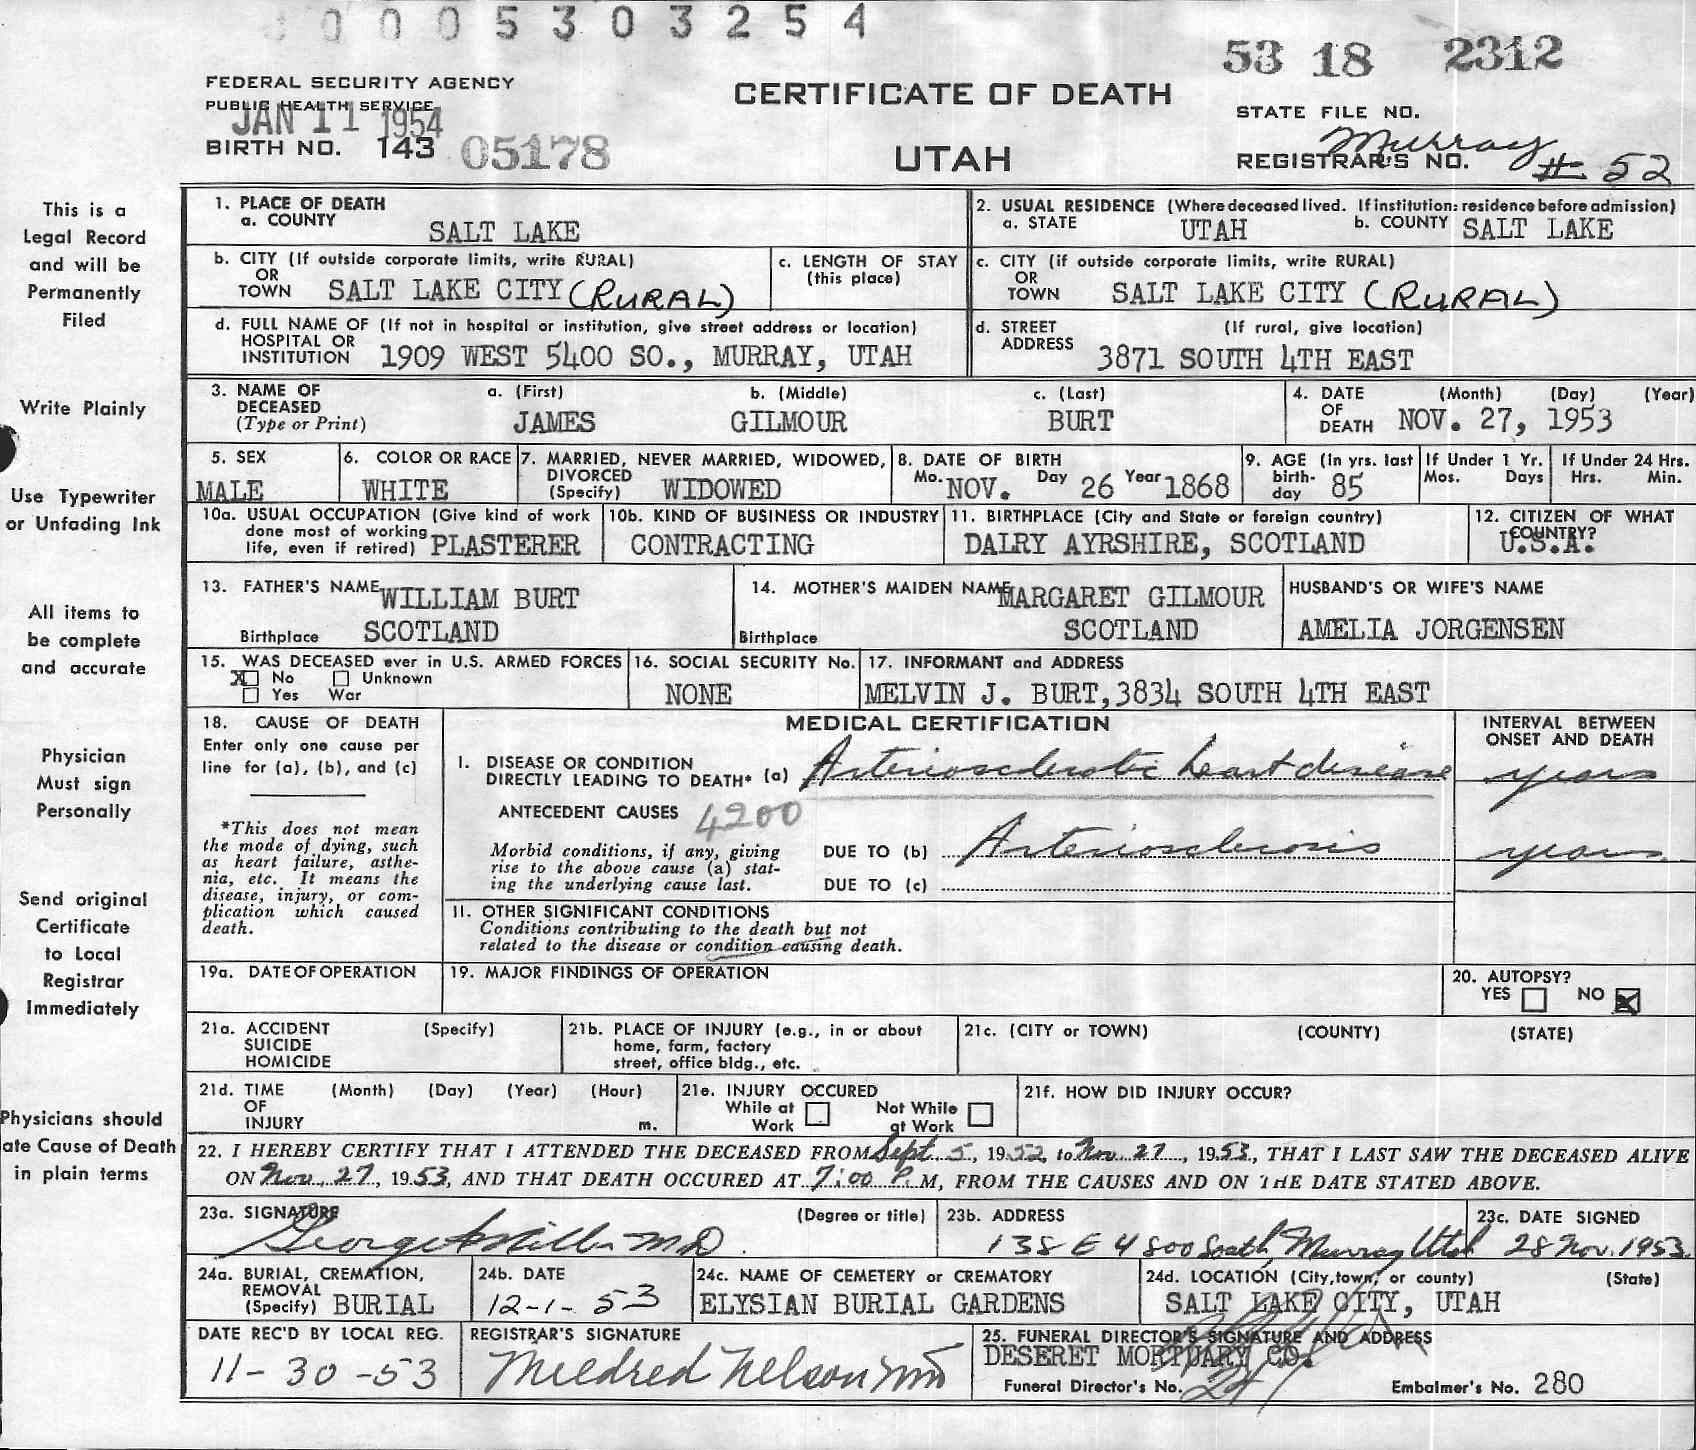 0 0 0 5 3 0 3 2 5 4
53 18 2312
FEDERAL SECURITY AGENCY
PUBLIC HEALTH SERVICE
JAN 11 1954
BIRTH NO. 143 05178
CERTIFICATE OF DEATH
UTAH
STATE FILE NO.
Murray
REGISTRAR'S NO. # 52
This is a
Legal Record
and will be
Permanently
Filed
Write Plainly
Use Typewriter
or Unfading Ink
All items to
be complete
and accurate
Physician
Must sign
Personally
Send original
Certificate
to Local
Registrar
Immediately
Physicians should
ate Cause of Death
in plain terms
1. PLACE OF DEATH
a. COUNTY SALT LAKE
2. USUAL RESIDENCE (Where deceased lived. If institution: residence before admission)
a. STATE UTAH b. COUNTY SALT LAKE
b. CITY (If outside corporate limits, write RURAL)
OR
TOWN SALT LAKE CITY (RURAL)
c. LENGTH OF STAY
(this place)
c. CITY (if outside corporate limits, write RURAL)
OR
TOWN SALT LAKE CITY (RURAL)
d. FULL NAME OF (If not in hospital or institution, give street address or location)
HOSPITAL OR
INSTITUTION 1909 WEST 5400 SO., MURRAY, UTAH
d. STREET (If rural, give location)
ADDRESS 3871 SOUTH 4TH EAST
3. NAME OF a. (First) b. (Middle) c. (Last)
DECEASED
(Type or Print) JAMES GILMOUR BURT
4. DATE (Month) (Day) (Year)
OF
DEATH NOV. 27, 1953
5. SEX
MALE
6. COLOR OR RACE
WHITE
7. MARRIED, NEVER MARRIED, WIDOWED,
DIVORCED
(Specify) WIDOWED
8. DATE OF BIRTH
Mo. NOV. Day 26 Year 1868
9. AGE (in yrs. last
birth-
day 85
If Under 1 Yr.
Mos. Days
If Under 24 Hrs.
Hrs. Min.
10a. USUAL OCCUPATION (Give kind of work
done most of working
life, even if retired) PLASTERER
10b. KIND OF BUSINESS OR INDUSTRY
CONTRACTING
11. BIRTHPLACE (City and State or foreign country)
DALRY AYRSHIRE, SCOTLAND
12. CITIZEN OF WHAT
COUNTRY?
U.S.A.
13. FATHER'S NAME WILLIAM BURT
Birthplace SCOTLAND
14. MOTHER'S MAIDEN NAME MARGARET GILMOUR
Birthplace SCOTLAND
HUSBAND'S OR WIFE'S NAME
AMELIA JORGENSEN
15. WAS DECEASED ever in U.S. ARMED FORCES
X No Unknown
Yes War
16. SOCIAL SECURITY No.
NONE
17. INFORMANT and ADDRESS
MELVIN J. BURT, 3834 SOUTH 4TH EAST
18. CAUSE OF DEATH
Enter only one cause per
line for (a), (b), and (c)
*This does not mean
the mode of dying, such
as heart failure, asthe-
nia, etc. It means the
disease, injury, or com-
plication which caused
death.
MEDICAL CERTIFICATION
INTERVAL BETWEEN
ONSET AND DEATH
I. DISEASE OR CONDITION
DIRECTLY LEADING TO DEATH* (a) Arteriosclerotic heart disease years
ANTECEDENT CAUSES 4200
Morbid conditions, if any, giving
rise to the above cause (a) stat-
ing the underlying cause last.
DUE TO (b) Arteriosclerosis years
DUE TO (c)
11. OTHER SIGNIFICANT CONDITIONS
Conditions contributing to the death but not
related to the disease or condition causing death.
19a. DATE OF OPERATION
19. MAJOR FINDINGS OF OPERATION
20. AUTOPSY?
YES NO X
21a. ACCIDENT (Specify)
SUICIDE
HOMICIDE
21b. PLACE OF INJURY (e.g., in or about
home, farm, factory
street, office bldg., etc.
21c. (CITY or TOWN) (COUNTY) (STATE)
21d. TIME (Month) (Day) (Year) (Hour)
OF
INJURY m.
21e. INJURY OCCURED
While at Not While
Work at Work
21f. HOW DID INJURY OCCUR?
22. I HEREBY CERTIFY THAT I ATTENDED THE DECEASED FROM Sept 5, 1952, to Nov. 27, 1953, THAT I LAST SAW THE DECEASED ALIVE
ON Nov. 27, 1953, AND THAT DEATH OCCURED AT 7:00 P.M, FROM THE CAUSES AND ON THE DATE STATED ABOVE.
23a. SIGNATURE (Degree or title)
George M.D.
23b. ADDRESS
138 E 4800 South, Murray Utah
23c. DATE SIGNED
28 Nov. 1953
24a. BURIAL, CREMATION,
REMOVAL
(Specify) BURIAL
24b. DATE
12-1-53
24c. NAME OF CEMETERY or CREMATORY
ELYSIAN BURIAL GARDENS
24d. LOCATION (City, town, or county) (State)
SALT LAKE CITY, UTAH
DATE REC'D BY LOCAL REG.
11-30-53
REGISTRAR'S SIGNATURE
Mildred Nelson
25. FUNERAL DIRECTOR'S SIGNATURE AND ADDRESS
DESERET MORTUARY CO.
Funeral Director's No. Embalmer's No. 280